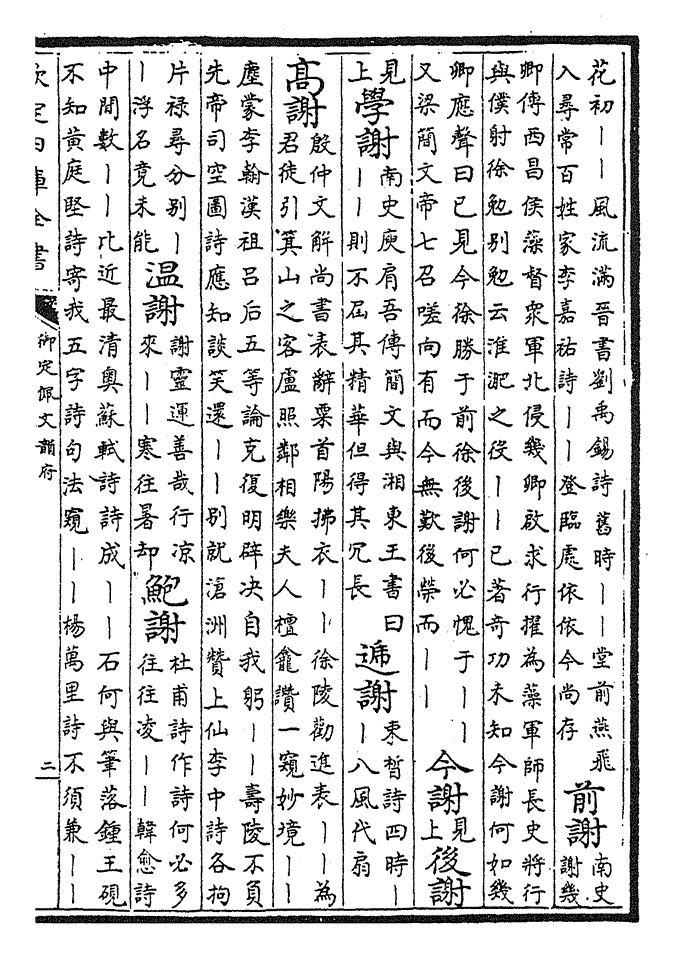 花初丨丨風流滿晉書劉禹錫詩舊時丨丨堂前燕飛
入尋常百姓家李嘉祐詩丨丨登臨處依依今尚存
前謝
南史
謝幾
卿傳西昌侯藻督衆軍北侵幾卿啟求行擢為藻軍師長史將行
與僕射徐勉別勉云淮淝之役丨丨已著奇功未知今謝何如幾
卿應聲曰已見今徐勝于前徐後謝何必愧于丨丨
又梁簡文帝七召嗟向有而今無歎後榮而丨丨
今謝
見
上
後謝
見
上
學謝
南史庾肩吾傳簡文與湘東王書曰
丨丨則不屆其精華但得其冗長
遞謝
束晳詩四時丨
丨八風代扇
高謝
殷仲文解尚書表辭粟首陽拂衣丨丨徐陵勸進表丨丨為
君徒引箕山之客盧照鄰相樂夫人檀龕讚一窺妙境丨丨
塵蒙李翰漢祖吕后五等論克復明辟决自我躬丨丨壽陵不負
先帝司空圖詩應知談笑還丨丨别就滄洲贊上仙李中詩各拘
片禄尋分别丨
丨浮名竟未能
温謝
謝靈運善哉行凉
來丨丨寒往暑却
鮑謝
杜甫詩作詩何必多
往往凌丨丨韓愈詩
中間數丨丨比近最清奧蘇軾詩詩成丨丨石何與筆落鍾王硯
不知黄庭堅詩寄我五字詩句法窺丨丨楊萬里詩不須兼丨丨
欽定四庫全書
御定佩文韻府
二